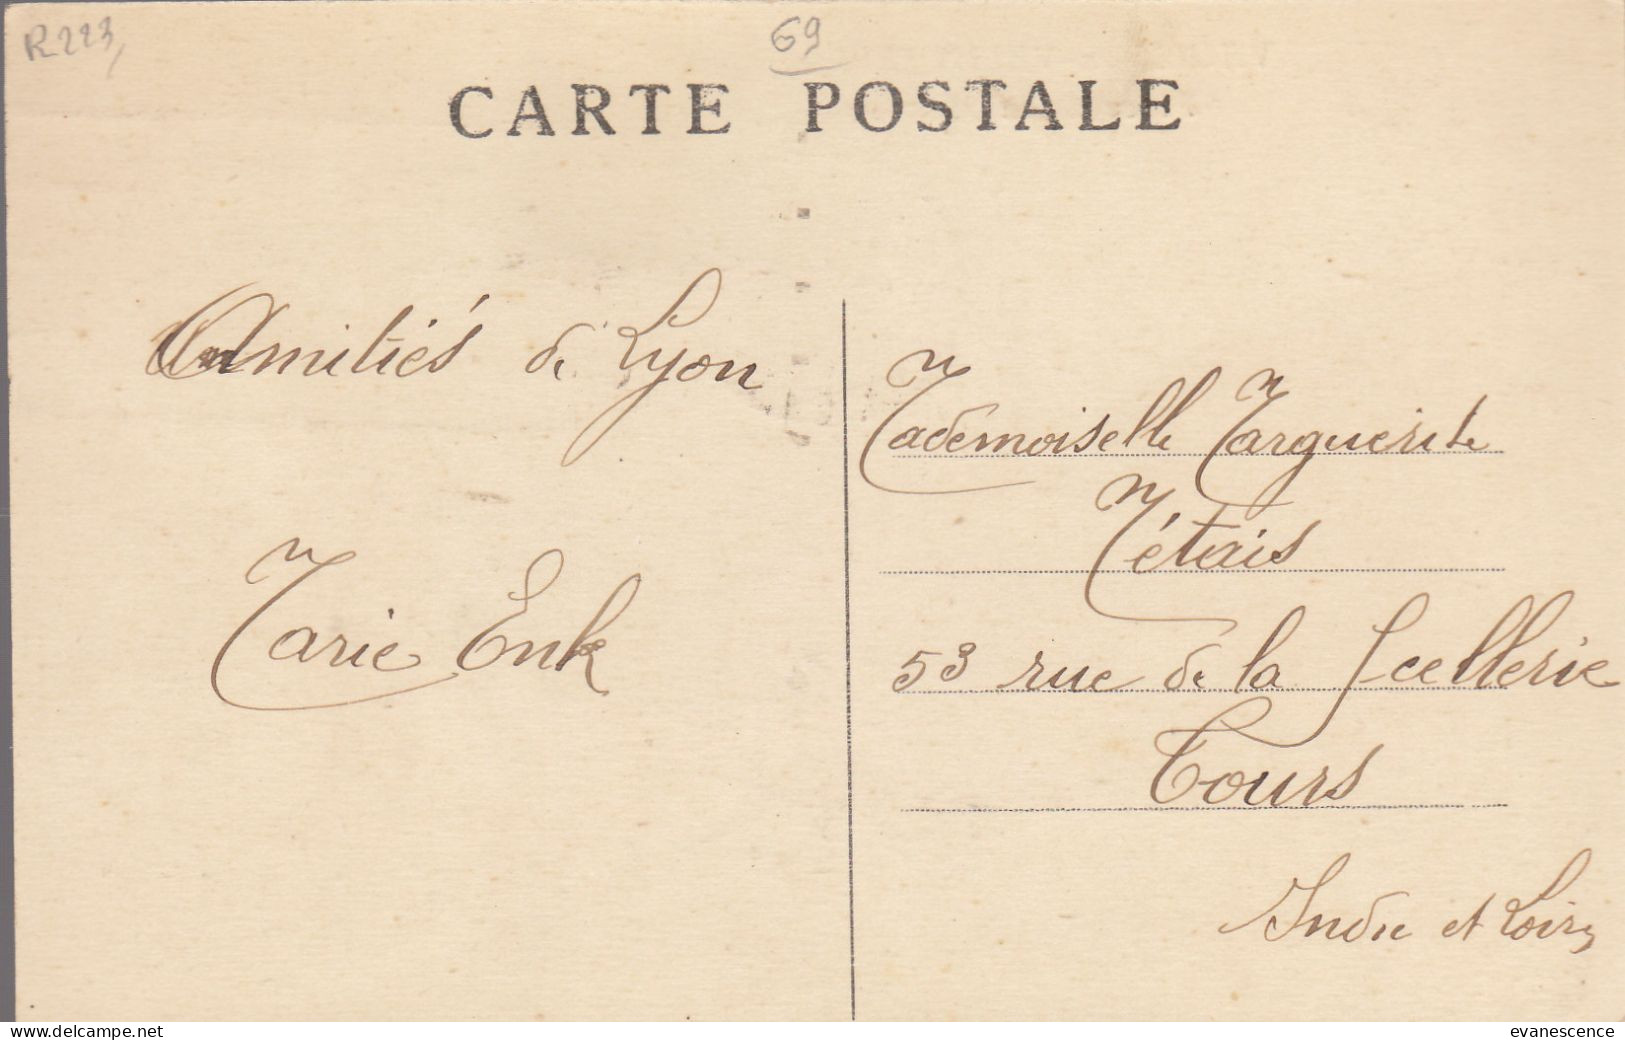 R223,
69
CARTE POSTALE
Amitiés de Lyon
Marie Enk
Mademoiselle Marguerite
Métais
53 rue de la Scellerie
Tours
Indre et Loire
www.delcampe.net
evanescence